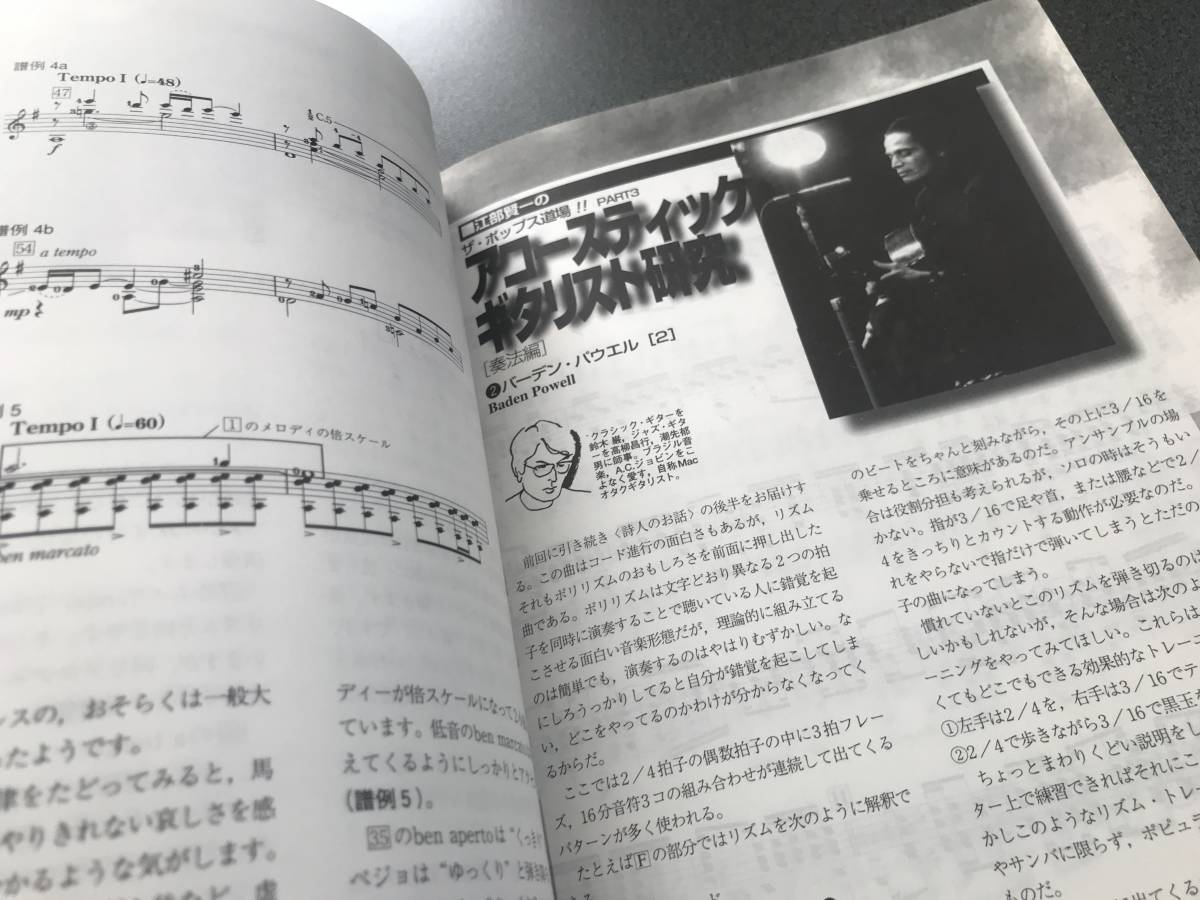 譜例 4a
Tempo I (♩=48)
47
½C.5
f
譜例 4b
54 a tempo
mp
5
Tempo I (♩=60)
1 のメロディの倍スケール
ben marcato
スの，おそらくは一般大
ったようです。
をたどってみると，馬
やりきれない哀しさを感
かるような気がします。
ディーが倍スケールになって
ています。低音のben marc
えてくるようにしっかりとア
(譜例 5)。
35 のben apertoは"くっき
ペジョは"ゆっくり"と
江部賢一の
ザ・ポップス道場!! PART3
アコースティック
ギタリスト研究
[奏法編]
❷バーデン・パウエル [2]
Baden Powell
クラシック・ギターを
鈴木 巌，ジャズ・ギタ
ーを高柳昌行，潮先郁
男に師事。ブラジル音
楽，A.C.ジョビンをこ
よなく愛す，自称Mac
オタクギタリスト。
前回に引き続き〈詩人のお話〉の後半をお届けす
る。この曲はコード進行の面白さもあるが，リズム
それもポリリズムのおもしろさを前面に押し出した
曲である。ポリリズムは文字どおり異なる２つの拍
子を同時に演奏することで聴いている人に錯覚を起
こさせる面白い音楽形態だが，理論的に組み立てる
のは簡単でも，演奏するのはやはりむずかしい。な
にしろうっかりしてると自分が錯覚を起こしてしま
い，どこをやってるのかわけが分からなくなってく
るからだ。
ここでは２/４拍子の偶数拍子の中に３拍フレー
ズ，16分音符３コの組み合わせが連続して出てくる
パターンが多く使われる。
たとえば F の部分ではリズムを次のように解釈で
のビートをちゃんと刻みながら，その上に３/16を
乗せるところに意味があるのだ。アンサンブルの場
合は役割分担も考えられるが，ソロの時はそうもい
かない。指が３/16で足や首，または腰などで２/
４をきっちりとカウントする動作が必要なのだ。
れをやらないで指だけで弾いてしまうとただの
子の曲になってしまう。
慣れていないとこのリズムを弾き切るのは
しいかもしれないが，そんな場合は次のよ
ーニングをやってみてほしい。これらは
くてもどこでもできる効果的なトレー
①左手は２/４を，右手は３/16でテ
②２/４で歩きながら３/16で黒玉
ちょっとまわりくどい説明をし
ター上で練習できればそれにこ
かしこのようなリズム・トレ
やサンバに限らず，ポピュラ
ものだ。
に出てくる